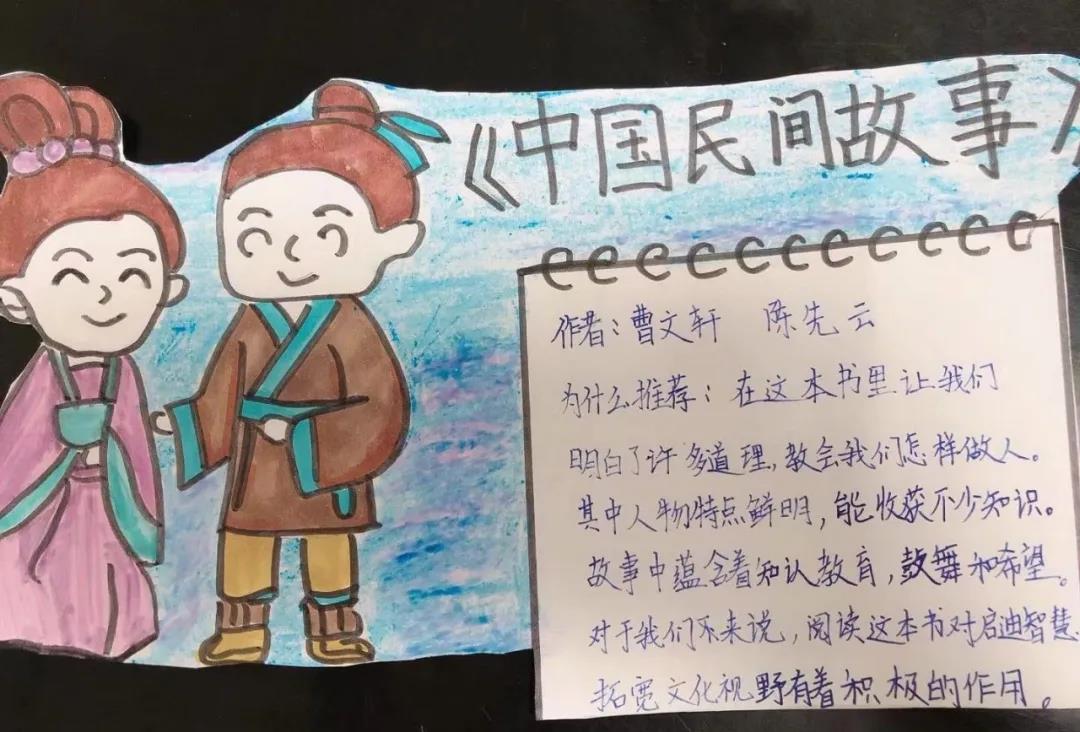 《中国民间故事》
作者：曹文轩 陈先云
为什么推荐：在这本书里让我们
明白了许多道理，教会我们怎样做人。
其中人物特点鲜明，能收获不少知识。
故事中蕴含着知认教育，鼓舞和希望。
对于我们不来说，阅读这本书对启迪智慧
拓宽文化视野有着积极的作用。